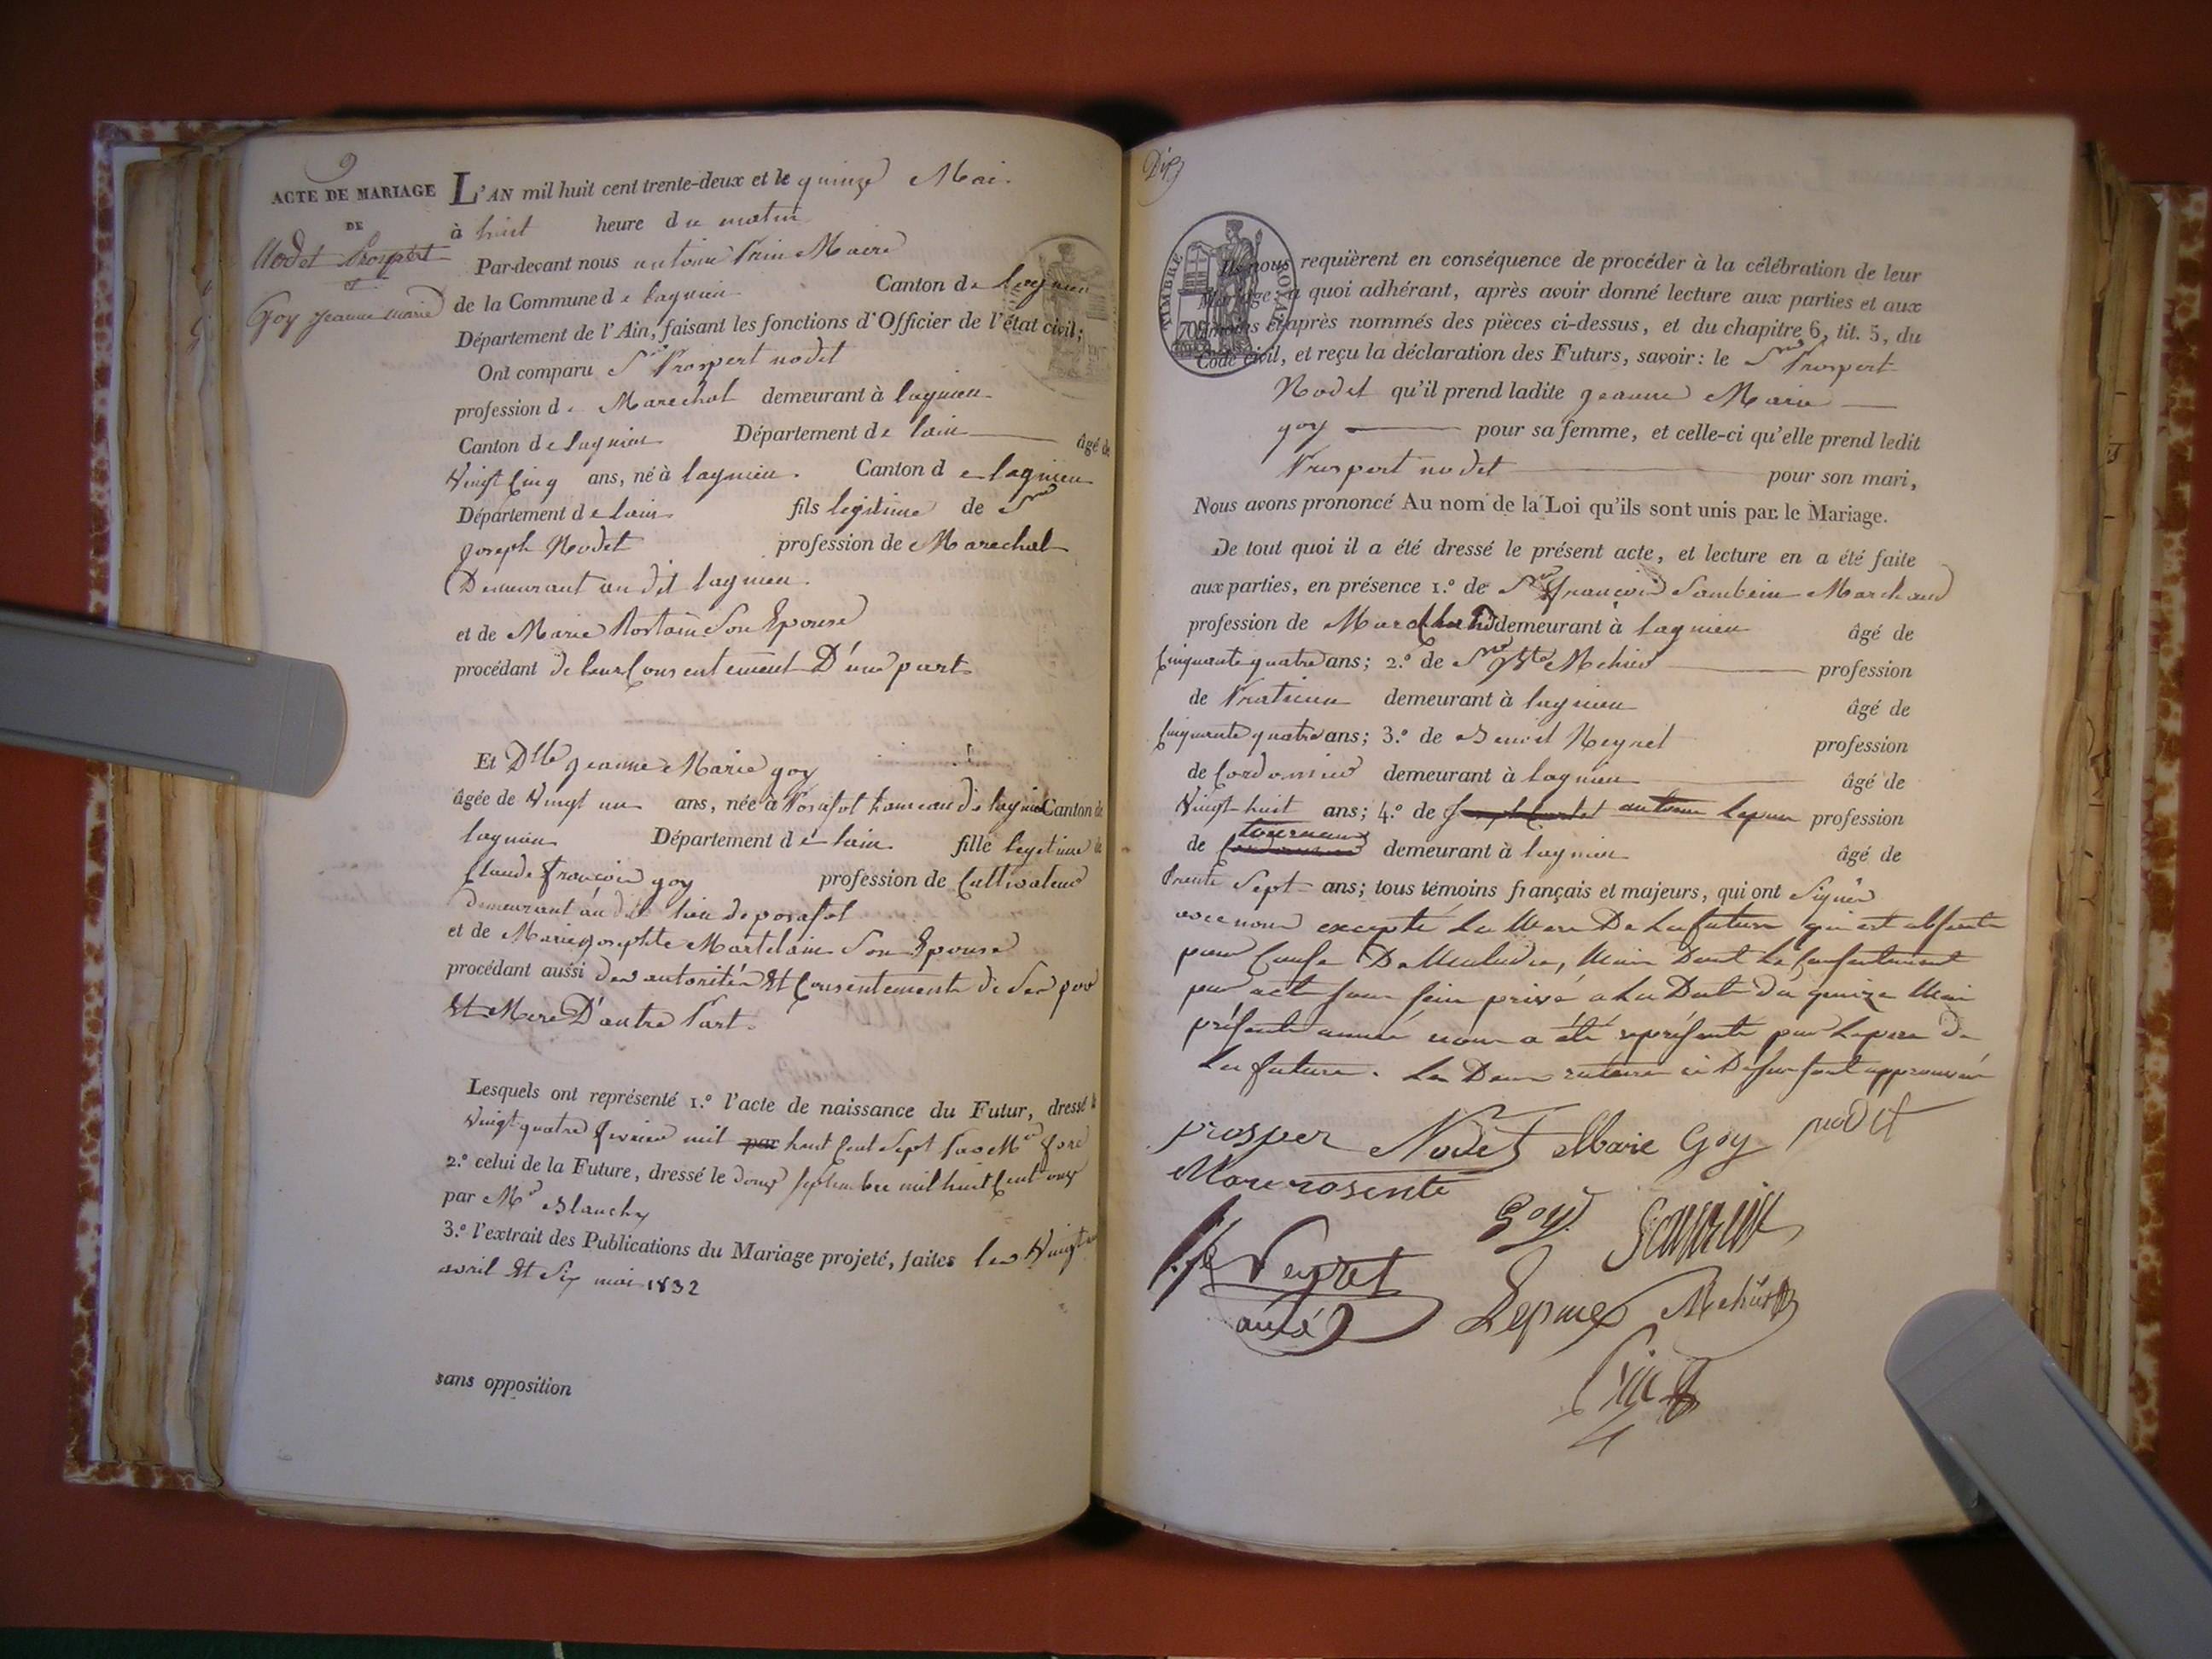 9
ACTE DE MARIAGE
DE
Nodet Prospert
et
Goy jeanne marie
L'AN mil huit cent trente-deux et le quinze Mai.
à huit heure du matin
Par-devant nous antoine Prin Maire
de la Commune de lagnieu Canton de lagnieu
Département de l'Ain, faisant les fonctions d'Officier de l'état civil;
Ont comparu Sr Prospert nodet
profession de Marechal demeurant à lagnieu
Canton de lagnieu Département de lain âgé de
Vingt Cinq ans, né à lagnieu. Canton de lagnieu
Département de lain fils legitime de Sr
joseph Nodet profession de Marechal
Demeurant au dit lagnieu.
et de Marie Rostain Son Epouse
procédant de leur Consentement D'une part
Et Dlle jeanne Marie goy
âgée de Vingt un ans, née à Posafol hameau de lagnieu Canton de
lagnieu Département de lain. fille legitime de
Claude françois goy profession de Cultivateur
demeurant au dit lieu de posafol
et de Marie josephte Martelain Son Epouse
procédant aussi des autorités Et Consentements de Ses père
Et Mere D'autre Part.
Lesquels ont représenté 1.º l'acte de naissance du Futur, dressé le
Vingt quatre fevrier mil par huit Cent Sept par Mr
2.º celui de la Future, dressé le douze septembre mil huit Cent onze
par Mr Blanchy
3.º l'extrait des Publications du Mariage projeté, faites les Vingt
avril Et Six mai 1832
sans opposition
Dix
TIMBRE ROYAL
Ils nous requièrent en conséquence de procéder à la célébration de leur
Mariage; a quoi adhérant, après avoir donné lecture aux parties et aux
témoins ci-après nommés des pièces ci-dessus, et du chapitre 6, tit. 5, du
Code civil, et reçu la déclaration des Futurs, savoir: le Sr Prospert
Nodet qu'il prend ladite jeanne Marie
goy pour sa femme, et celle-ci qu'elle prend ledit
Prospert nodet pour son mari,
Nous avons prononcé Au nom de la Loi qu'ils sont unis par le Mariage.
De tout quoi il a été dressé le présent acte, et lecture en a été faite
aux parties, en présence 1.º de Sr françois Marchand
profession de Marchand demeurant à lagnieu âgé de
Cinquante quatre ans; 2.º de Sr Mehier profession
de Praticien demeurant à lagnieu âgé de
Cinquante quatre ans; 3.º de Benoit Neyret profession
de Cordonnier demeurant à lagnieu âgé de
Vingt-huit ans; 4.º de antoine Lepine profession
de tourneur demeurant à lagnieu âgé de
Trente Sept ans; tous témoins français et majeurs, qui ont Signés
avec nous excepté La Mere De La future qui est absente
pour Cause De Maladie, Mais Dont Le Consentement
par acte sous sein privé a La Date du quinze Mai
présente année nous a été représenté par Le pere de
La future. Les Deux ratures ci Dessus sont approuvées
prosper Nodet Marie Goy nodet
Marie rosente
Goy
Neyret
ainé Lepine Mehier
Prin